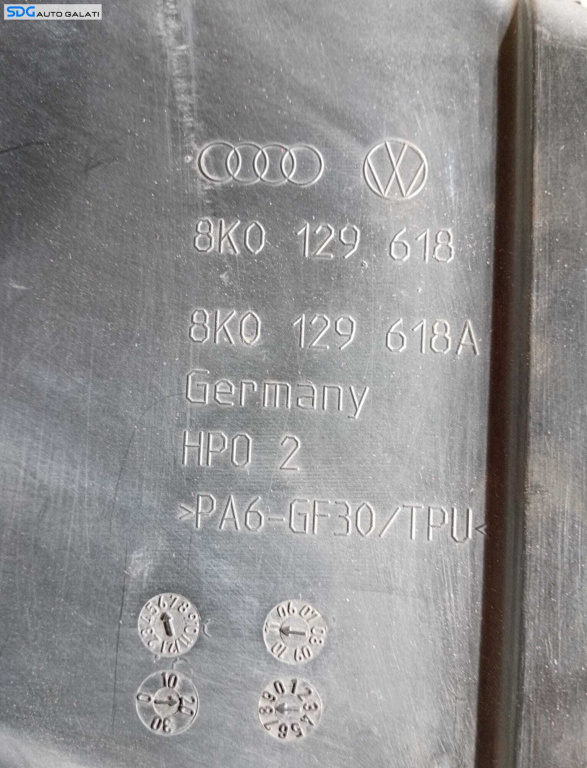 SDG AUTO GALATI
8K0 129 618
8K0 129 618A
Germany
HPO 2
>PA6-GF30/TPU<
1 2 3 4 5 6 7 8 9 10 11 12
06 07 08 09 10 11
0 10 20 30
0 1 2 3 4 5 6 7 8 9